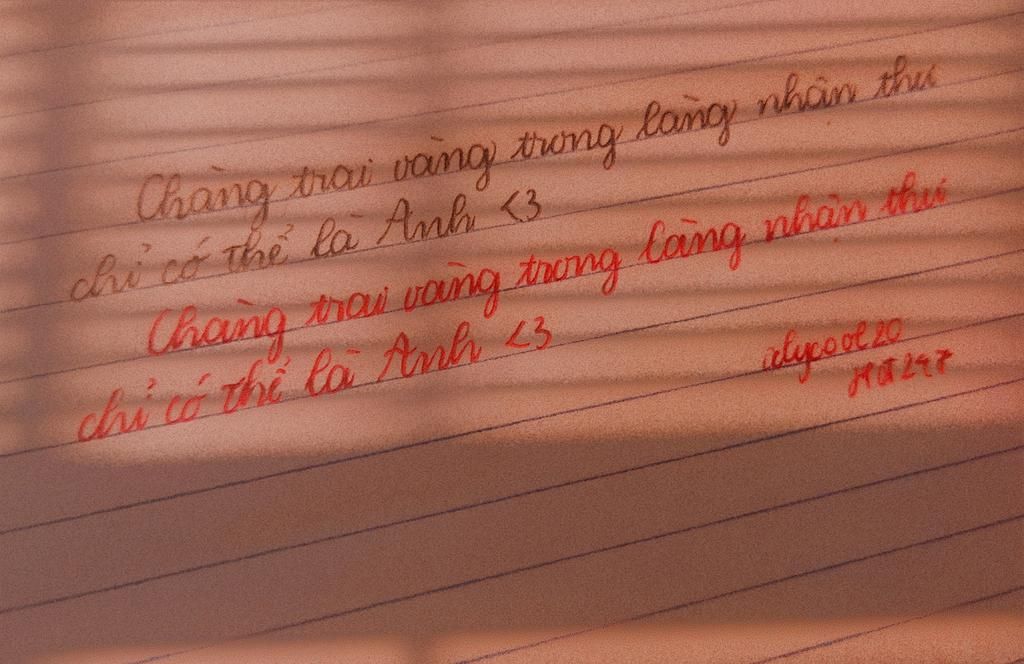 Chàng trai vàng trong làng nhân thư
chỉ có thể là Anh <3
Chàng trai vàng trong làng nhân thư
chỉ có thể là Anh <3
alycool20
HG247